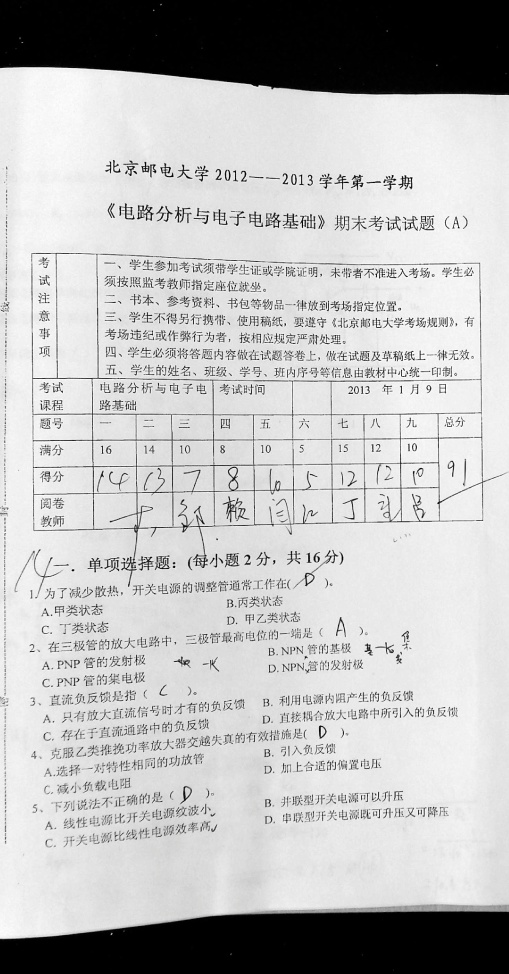 北京邮电大学2012——2013学年第一学期
《电路分析与电子电路基础》期末考试试题（A）
考试注意事项
一、学生参加考试须带学生证或学院证明，未带者不准进入考场。学生必
须按照监考教师指定座位就坐。
二、书本、参考资料、书包等物品一律放到考场指定位置。
三、学生不得另行携带、使用稿纸，要遵守《北京邮电大学考场规则》，有
考场违纪或作弊行为者，按相应规定严肃处理。
四、学生必须将答题内容做在试题答卷上，做在试题及草稿纸上一律无效。
五、学生的姓名、班级、学号、班内序号等信息由教材中心统一印制。
考试课程 电路分析与电子电路基础 考试时间 2013 年 1 月 9 日
题号 一 二 三 四 五 六 七 八 九 总分
满分 16 14 10 8 10 5 15 12 10
得分 14 13 7 8 10 5 12 12 10 91
阅卷教师 赖 闫 江 丁
14
一．单项选择题：(每小题 2 分，共 16 分)
1、为了减少散热，开关电源的调整管通常工作在( D )。
A.甲类状态 B.丙类状态
C. 丁类状态 D. 甲乙类状态
2、在三极管的放大电路中，三极管最高电位的一端是（ A ）。
A. PNP 管的发射极 B. NPN 管的基极
C. PNP 管的集电极 D. NPN 管的发射极
3、直流负反馈是指（ C ）。
A. 只有放大直流信号时才有的负反馈 B. 利用电源内阻产生的负反馈
C. 存在于直流通路中的负反馈 D. 直接耦合放大电路中所引入的负反馈
4、克服乙类推挽功率放大器交越失真的有效措施是( D )。
A.选择一对特性相同的功放管 B. 引入负反馈
C. 减小负载电阻 D. 加上合适的偏置电压
5、下列说法不正确的是（ D ）。
A. 线性电源比开关电源纹波小 B. 并联型开关电源可以升压
C. 开关电源比线性电源效率高 D. 串联型开关电源既可升压又可降压